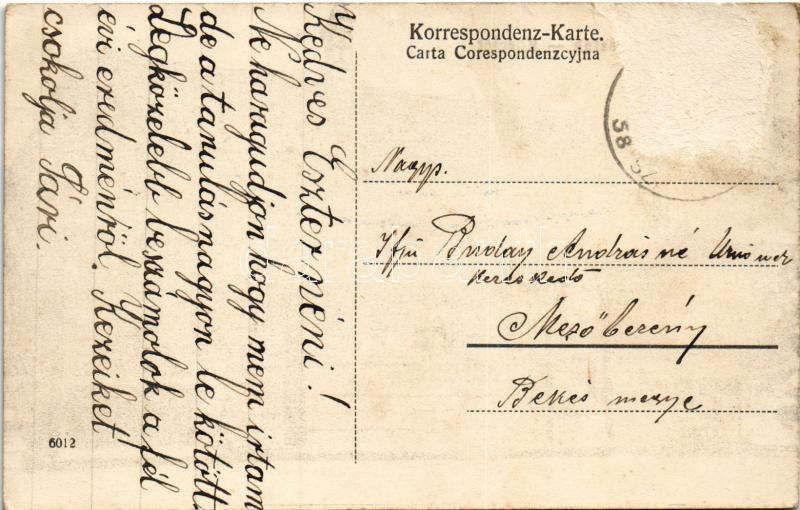 Korrespondenz-Karte.
Carta Corespondenzcyjna
Kedves Eszter néni!
Ne haragudjon hogy nem irtam
de a tanulás nagyon le kötött.
Legközelebb beszámolok a fél
évi eredményröl. Kezeiket
csokolja Sári.
Nagys.
Ifju Buday Andrásné Urnőnek
kereskedő
Mezőberény
Bekés megye
6012
58